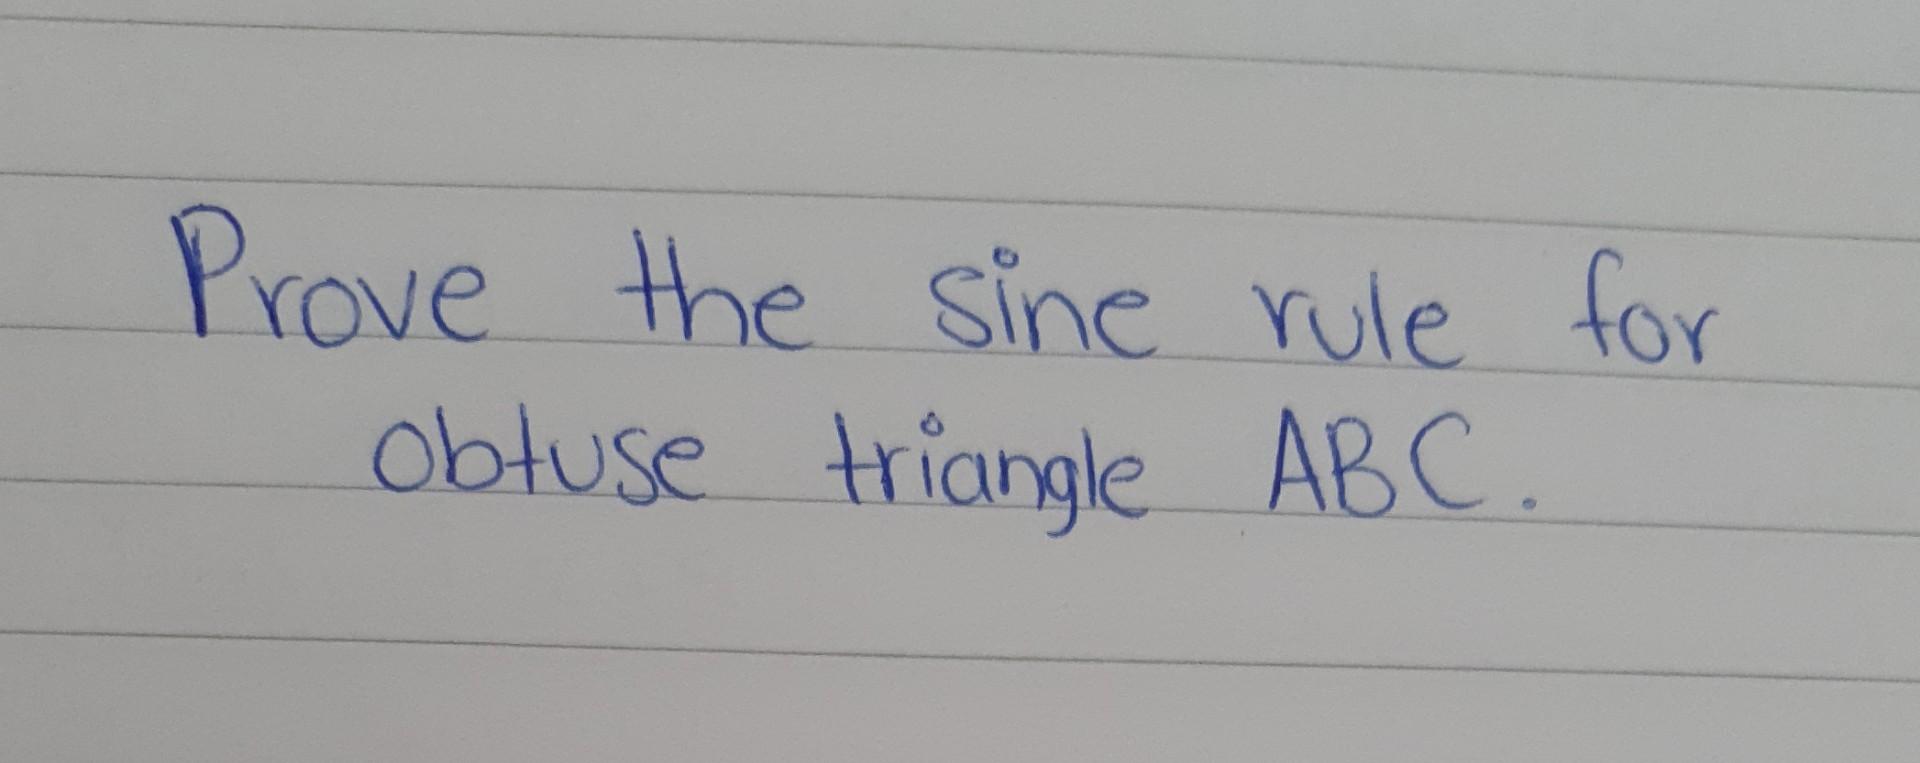 Prove the sine rule for
obtuse triangle ABC.